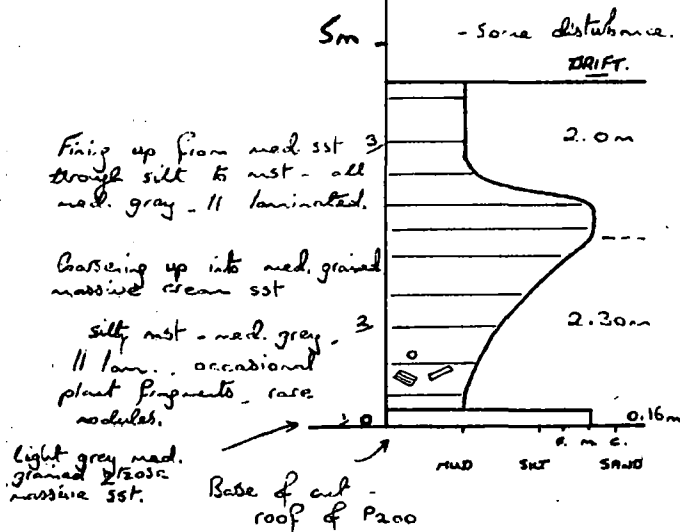 5m
- Some disturbance.
DRIFT.
Fining up from med. sst
through silt to mst - all
med. gray - // laminated.
3
2.0m
Coarsening up into med. grained
massive cream sst
silty mst - med. grey.
// lam., occasional
plant fragments, rare
nodules.
3
2.30m
0
0.16m
Light grey med.
grained
massive sst.
F. M. C.
MUD SILT SAND
Base of cut -
roof of P200